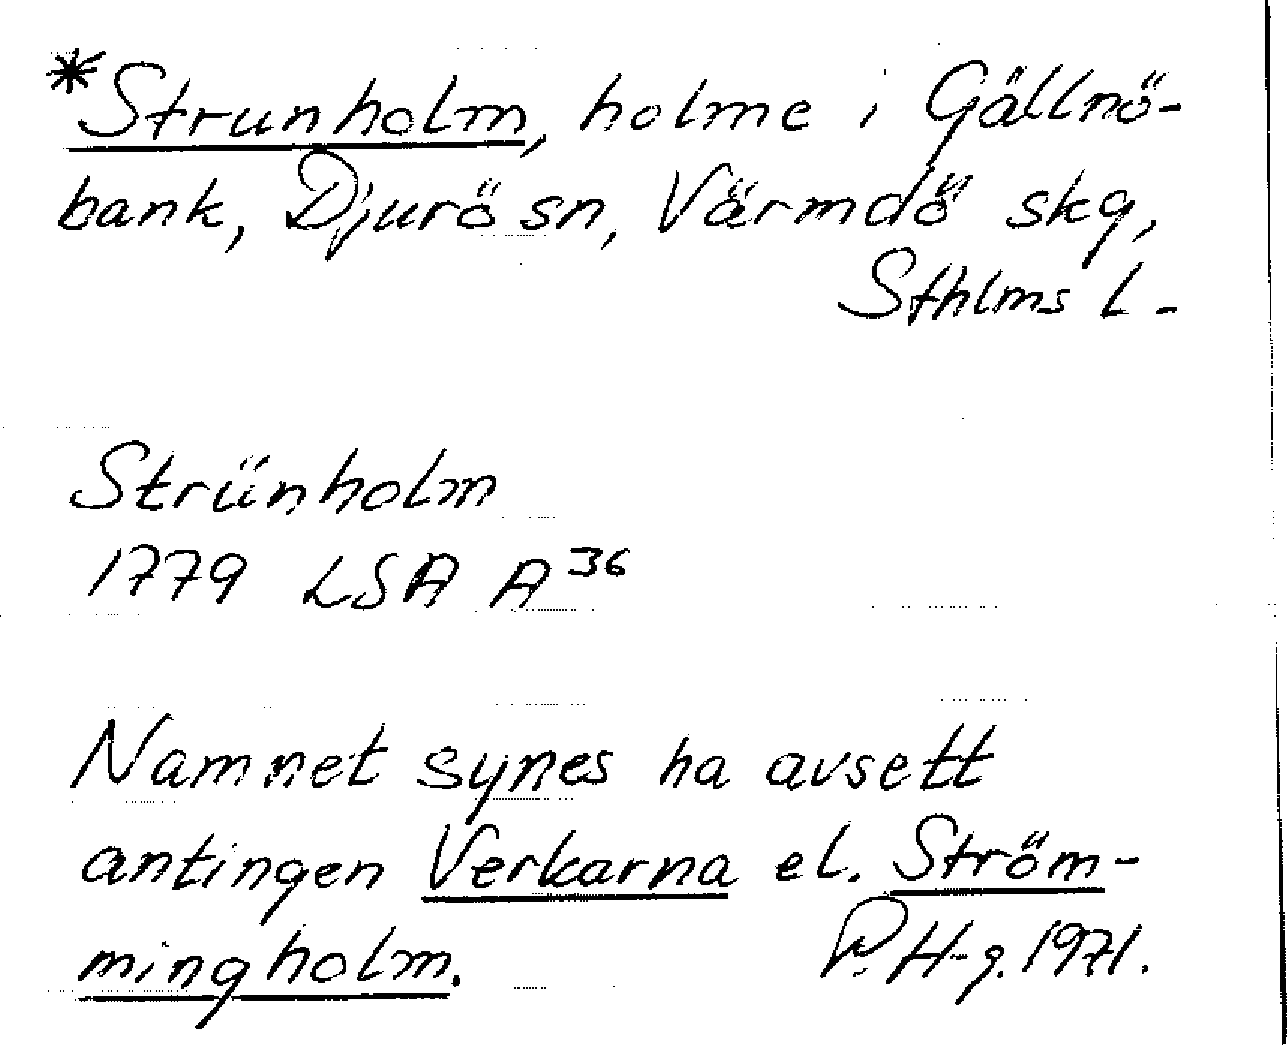 *Strunholm, holme i Gällnö-
bank, Djurö sn, Värmdö skg,
Sthlms l-
Strünholm
1779 LSA A 36
Namnet synes ha avsett
antingen Verkarna el. Ström-
mingholm. P. H-g. 1971.